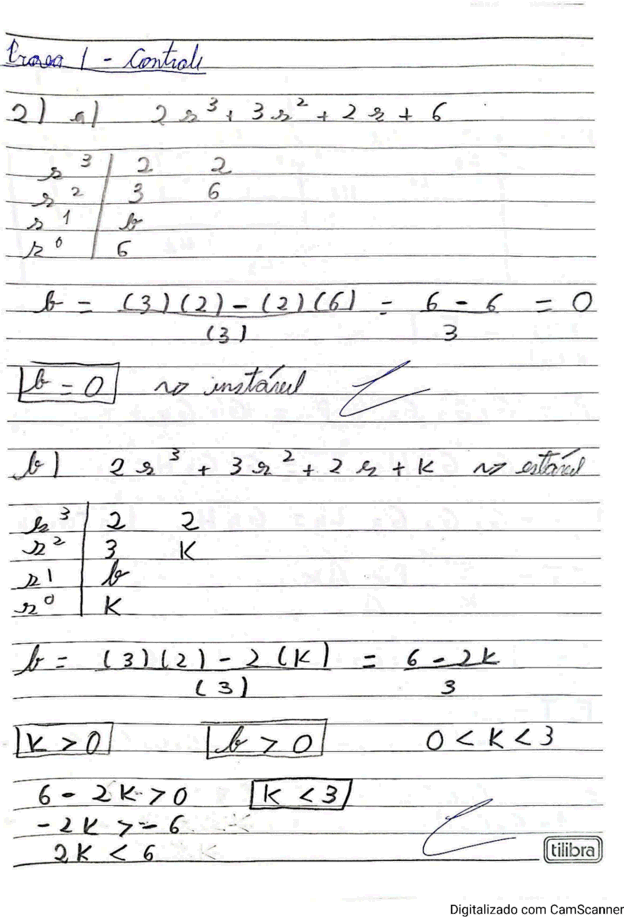 Prova 1 - Controle
2) a) 2s³ + 3s² + 2s + 6
s³ | 2 2
s² | 3 6
s¹ | b
s⁰ | 6
b = (3)(2) - (2)(6) / (3) = 6 - 6 / 3 = 0
b = 0 ~> instável
b) 2s³ + 3s² + 2s + K ~> estável
s³ | 2 2
s² | 3 K
s¹ | b
s⁰ | K
b = (3)(2) - 2(K) / (3) = 6 - 2K / 3
K > 0 b > 0 0 < K < 3
6 - 2K > 0 K < 3
-2K > -6
2K < 6
tilibra
Digitalizado com CamScanner